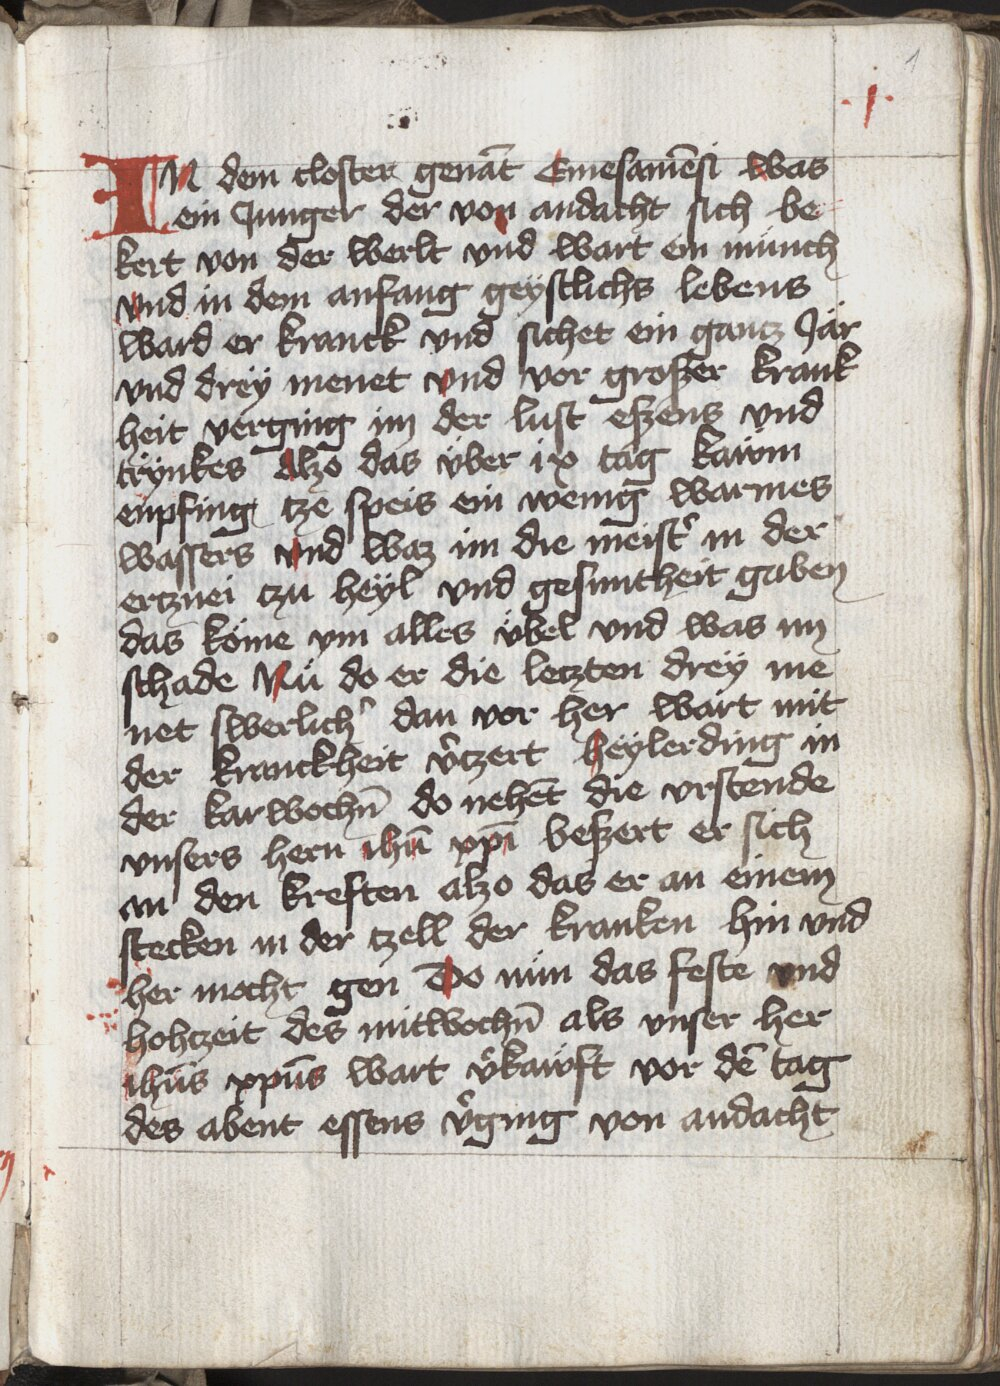 1
.1.
IN dem closter genāt Emesamēsi was
ein Junger der von andacht sich be
kert von der werlt vnd wart ein münch
vnd in dem anfang geÿstlichs lebens
ward er kranck vnd sichet ein gantz Jar
vnd dreÿ menet vnd vor großer krank
heit verging im der lust eßens vnd
trÿnkes Alzo das v̈ber ix tag kawm
enpfing tze speis ein wenig warmes
wassers vnd waz im die meist̾ in der
ertznei tzu heÿl vnd gesuntheit gaben
das köme vm alles v̈bel vnd was im
schade Nu do er die letzten dreÿ me
net swerlich̾ dan vor her wart mit
der kranckheit v̾tzert heylerding in
der karwochn̄ do nehēt die vrstende
vnsers hern ihū xpī beßert er sich
an den kreften alzo das er an einem
stecken in der tzell der kranken hin vnd
her mocht gen Do nun das feste vnd
hohtzeit des mitwochn̄ als vnser her
ihūs xpūs wart v̾kawft vor dē tag
des abent essens v̾ging von andacht